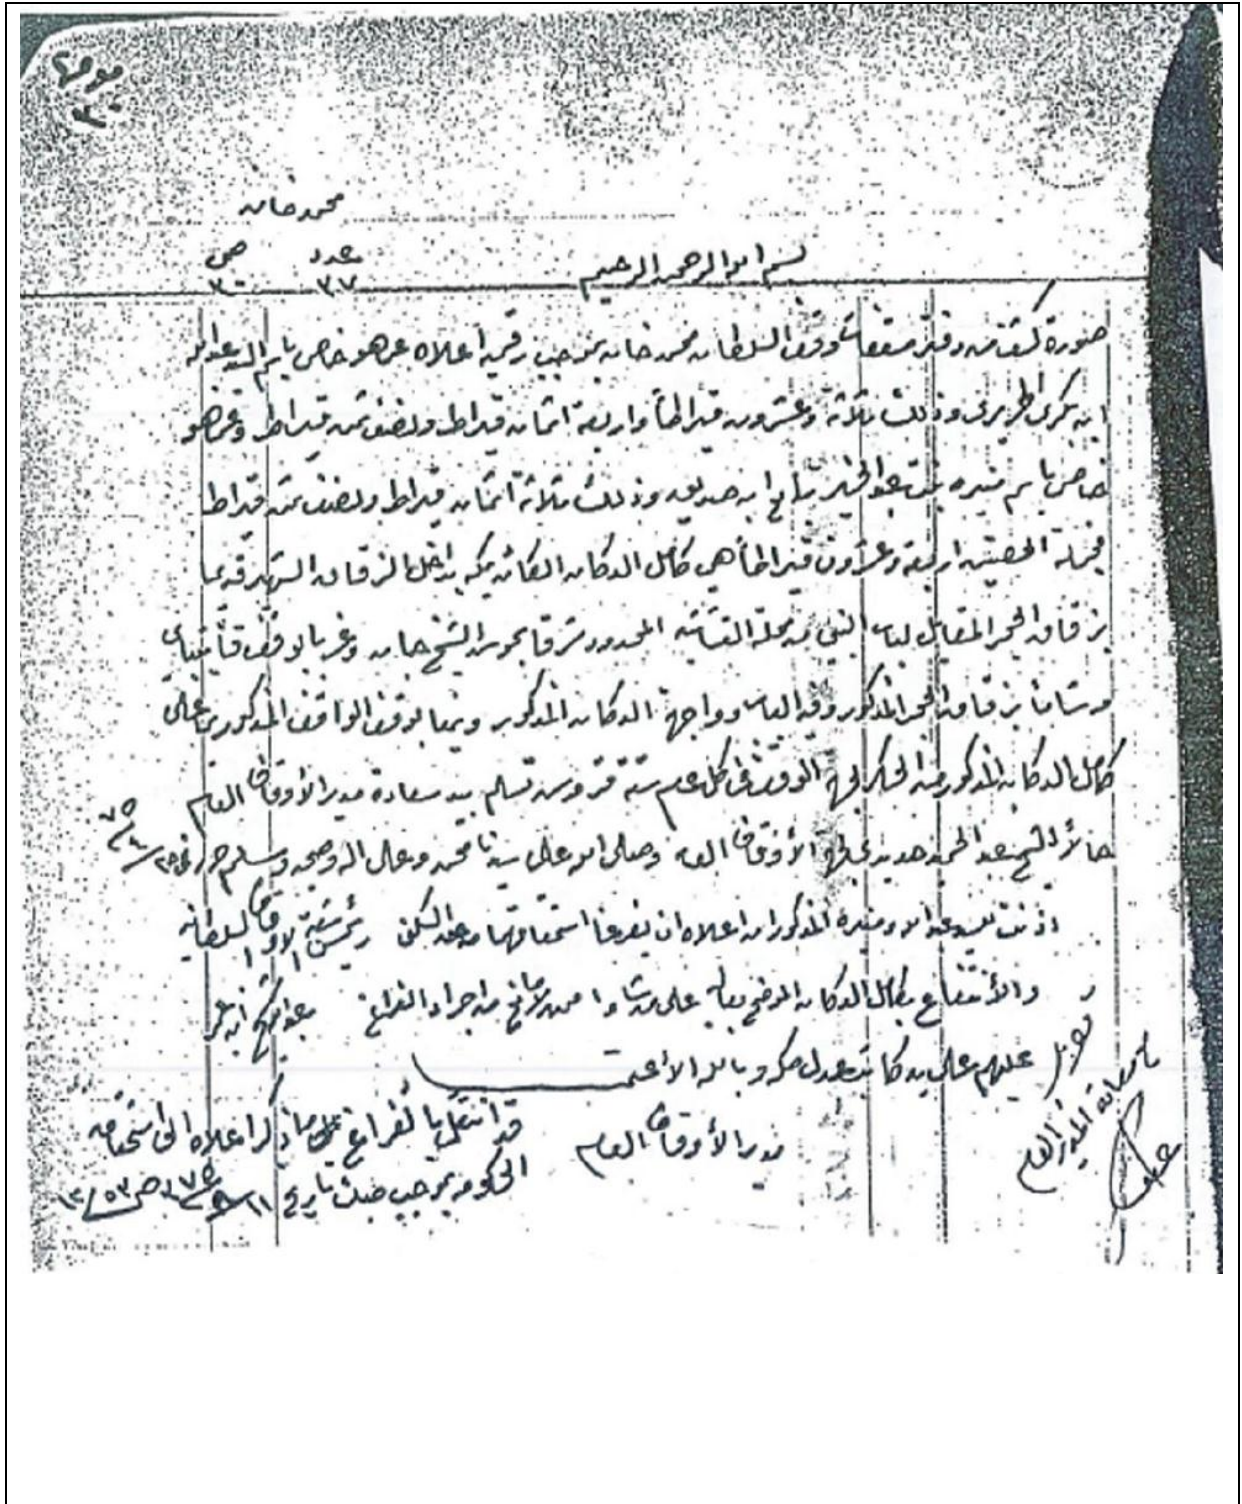 محمد خان
عدد ٣٧ ص ٣٠
بسم الله الرحمن الرحيم
صورة كشف من دفتر مسقفات وقف السلطان محمد خان بموجب رقميه اعلاه عن هو خاص باسم السيد عبدالله
ابن بكري الحريري وذلك ثلاثة وعشرون قيراطاً واربعة اثمان قيراط ونصف ثمن قيراط وعن هو
خاص باسم منيره بنت عبد الخير تابع ابن صديق وذلك ثلاثة اثمان قيراط ونصف ثمن قيراط
فجملة الحصتين اربعة وعشرون قيراطاً هي كامل الدكان الكائن بمكه بداخل الزقاق الشهير قديما
بزقاق الحجر المقابل لباب النبي من محلة القشاشيه المحدود شرقا بحوش الشيخ جان وغربا بوقف قايتباي
وشاما بزقاق الحجر المذكور وفيه الباب وواجهة الدكان المذكور ويمنا بوقف الواقف المذكور على
كامل الدكان المذكور من الحكر لجهة الوقف في كل عام ستة قروش تسلم بيد سعادة مدير الأوقاف العام
حالاً الشيخ عبد الحميد حديدي لجهة الأوقاف العامه وصلى الله على سيدنا محمد وعلى آله وصحبه وسلم حرر في ٧٥
اذنت للسيد عبد الله ومنيره المذكوران اعلاه ان يفرغا استحقاقهما من حق السكنى
والأنتفاع بكامل الدكان الموضح بعاليه على من شاءا ممن لا مانع من اجراء الفراغ
عليهم على يد كاتب عدل مكه وبالله الاعتماد
رئيس شعبة الأوقاف السلطانيه
مدير الأوقاف العام
قد انتقل بالفراغ كل ما ذكر اعلاه الى استحقاق
الحكومه بموجب صك تاريخ ١١
المدير العام